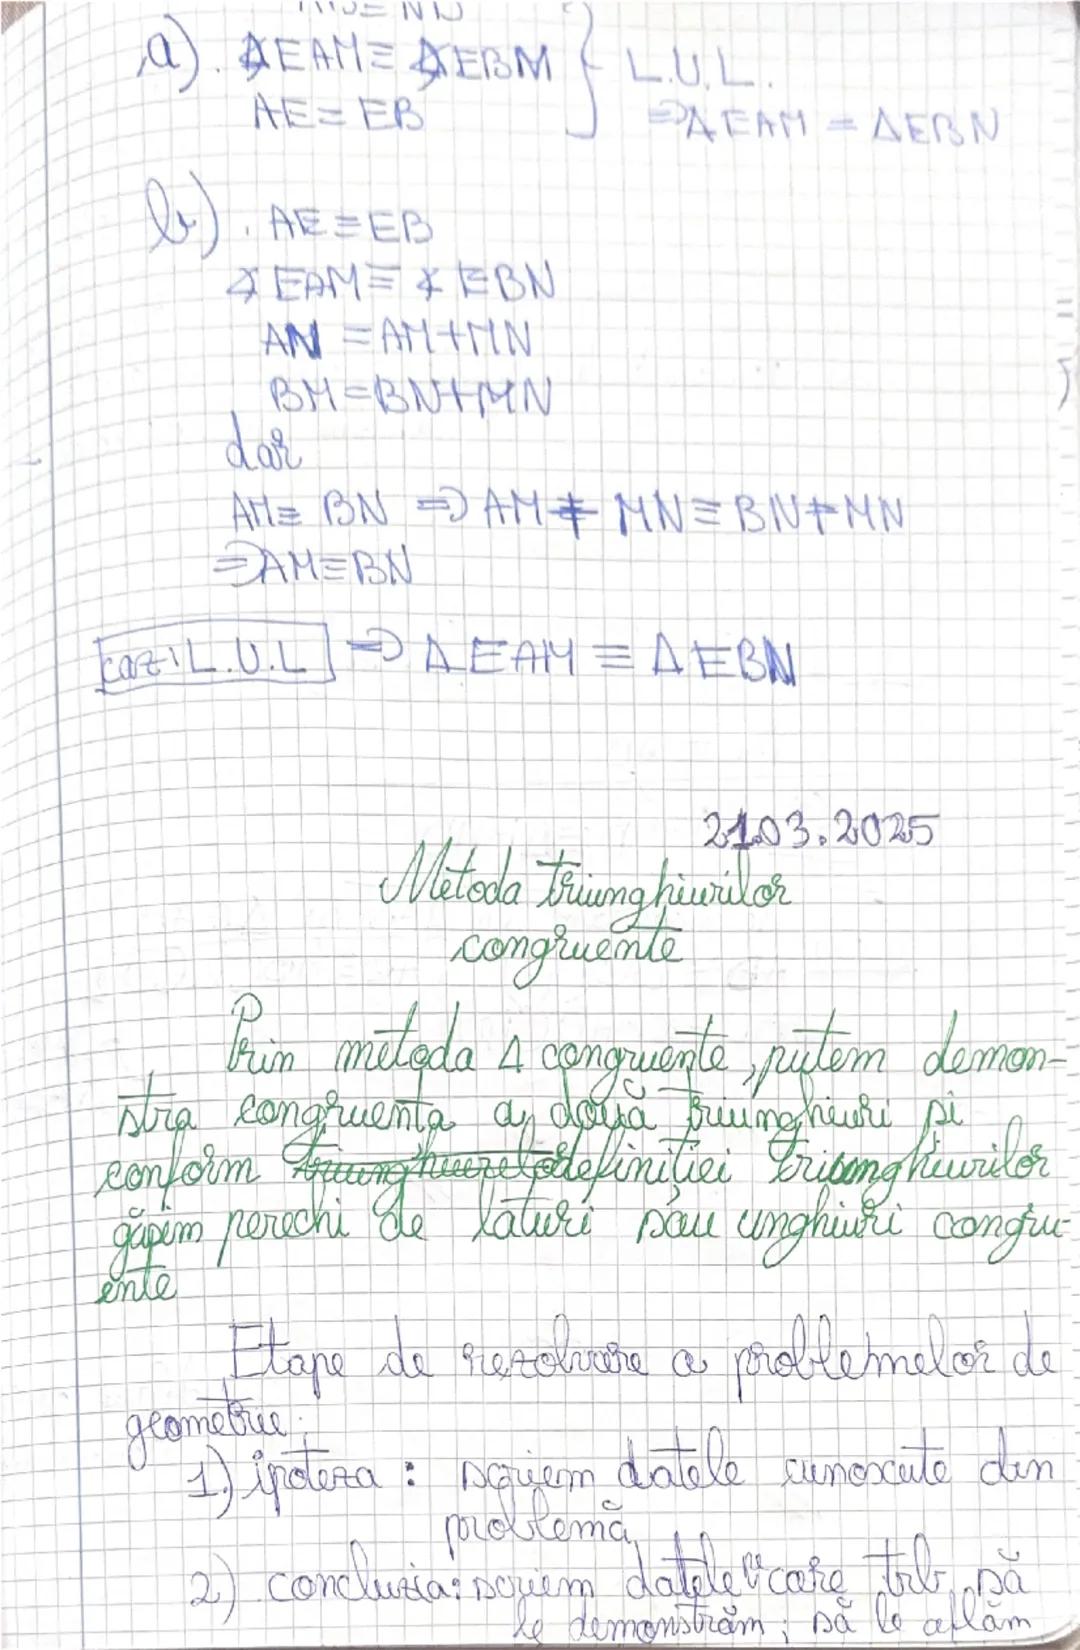 a). ∢EAM≡ ∢EBM } L.U.L.
AE≡EB ⇒ΔEAM = ΔEBN
b). AE≡EB
∢EAM≡ ∢EBN
AN =AM+MN
BM=BN+MN
dar
AM≡ BN ⇒ AM + MN≡BN+MN
⇒AM≡BN
caz: L.U.L ⇒ ΔEAM ≡ ΔEBN
21.03.2025
Metoda triunghiurilor
congruente
Prin metoda Δ congruente, putem demon-
stra congruenta a două triunghiuri și
conform definiției triunghiurilor
găsim perechi de laturi sau unghiuri congru-
ente
Etape de rezolvare a problemelor de
geometrie:
1) ipoteza : scriem datele cunoscute din
problemă
2) concluzia: scriem datele care trb. să
le demonstrăm; să le aflăm